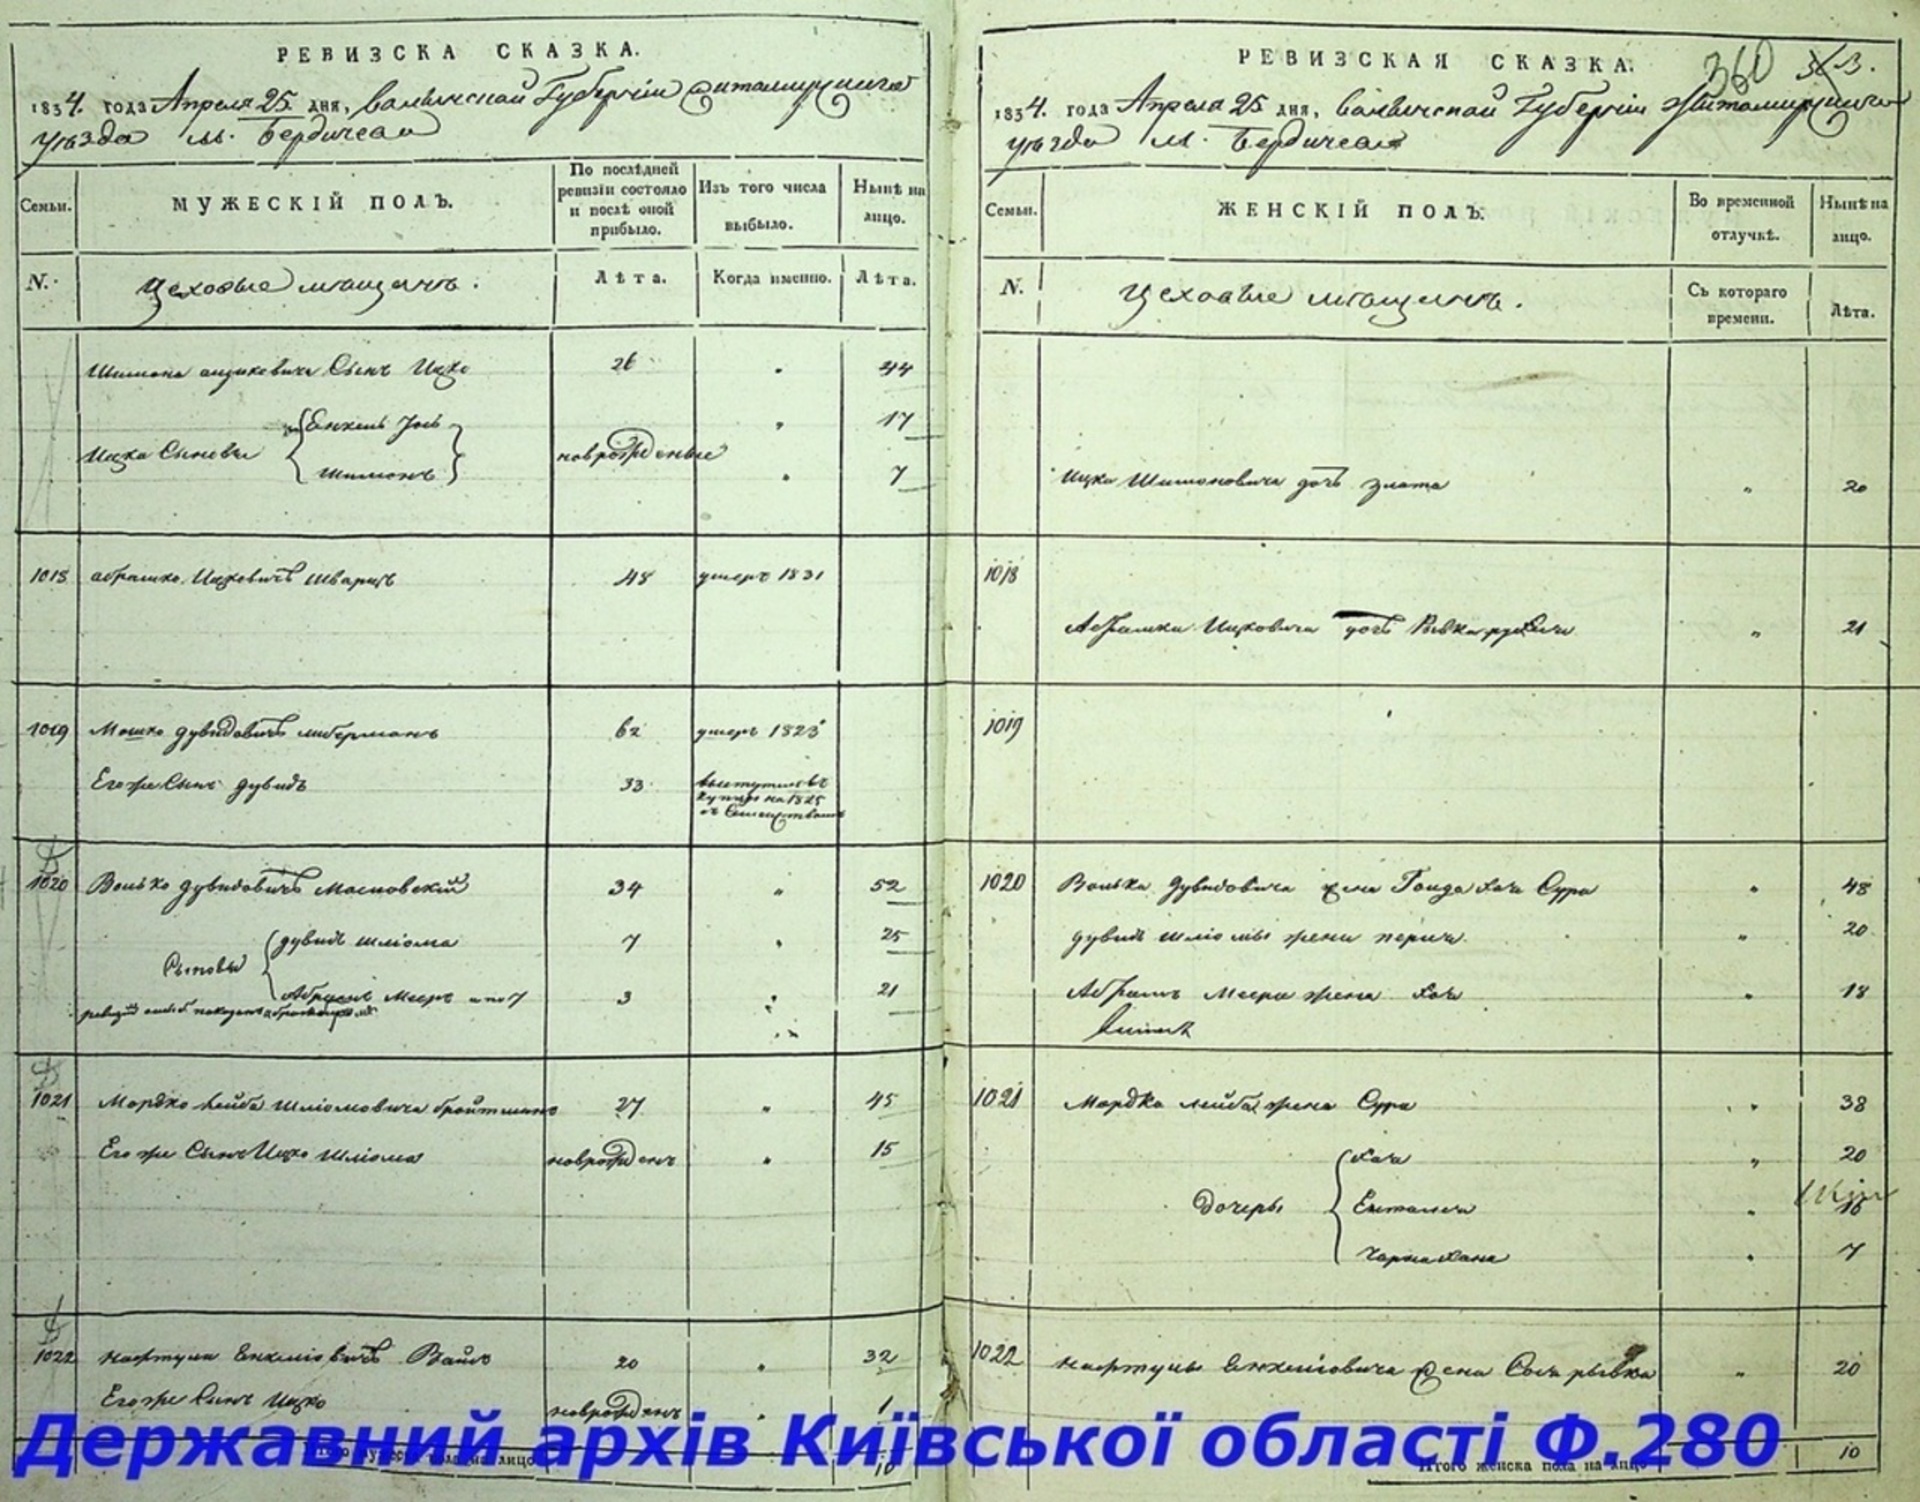 РЕВИЗСКА СКАЗКА.
1834. года Апреля 25. дня, Волынской Губернiи Житомирскаго
уѣзда м. Бердичева
Семьи.
МУЖЕСКІЙ ПОЛЪ.
По послѣдней
ревизіи состояло
и послѣ оной
прибыло.
Изъ того числа
выбыло.
Нынѣ на
лицо.
N.
Цеховые мѣщанъ.
Лѣта.
Когда именно.
Лѣта.
Шимона Сынъ Ицко 26 44
Ицка Сыновья
Енкель Іось 17
новрожденые
Шимонъ 7
1018 Абрамко Ицковичъ Шварцъ 48 умеръ 1831
1019 Мошко Дувидовичъ Либерманъ 62 умеръ 1823
Егоже Сынъ Дувидъ 33
купцы на 1825
1020 Волько Дувидовичъ 34 " 52
Сыновья
Дувидъ Шліома 7 " 25
Абрамъ Меер 3 21
1021 Мордко Лейба Шліомовича Бройтманъ 27 " 45
Егоже Сынъ Ицко Шліома новрожденъ " 15
1022 Нафтула Енкеліовичъ Вайсъ 20 " 32
Егоже Сынъ Ицко новрожденъ 1
Итого мужеска пола на лицо 10
РЕВИЗСКАЯ СКАЗКА.
360
1834. года Апреля 25 дня, Волынской Губернiи Житомирскаго
уѣзда м. Бердичева
Семьи.
ЖЕНСКІЙ ПОЛЪ.
Во временной
отлучкѣ.
Нынѣ на
лицо.
N.
Цеховые мѣщанъ.
Съ котораго
времени.
Лѣта.
Ицка Шимоновича дочь Злата " 20
1018
Абрамка Ицковича дочь Рывка " 21
1019
1020 Волька Дувидовича жена Сура " 48
Дувидъ Шліомы жена " 20
Абрамъ Меера жена Хая " 18
1021 Мордка Лейба жена Сура " 38
Дочеры
Хая " 20
" 16
Чарна Хана " 7
1022 Нафтулы Енкеліовича жена Рывка " 20
Итого женска пола на лицо 10
Державний архів Київської області Ф.280